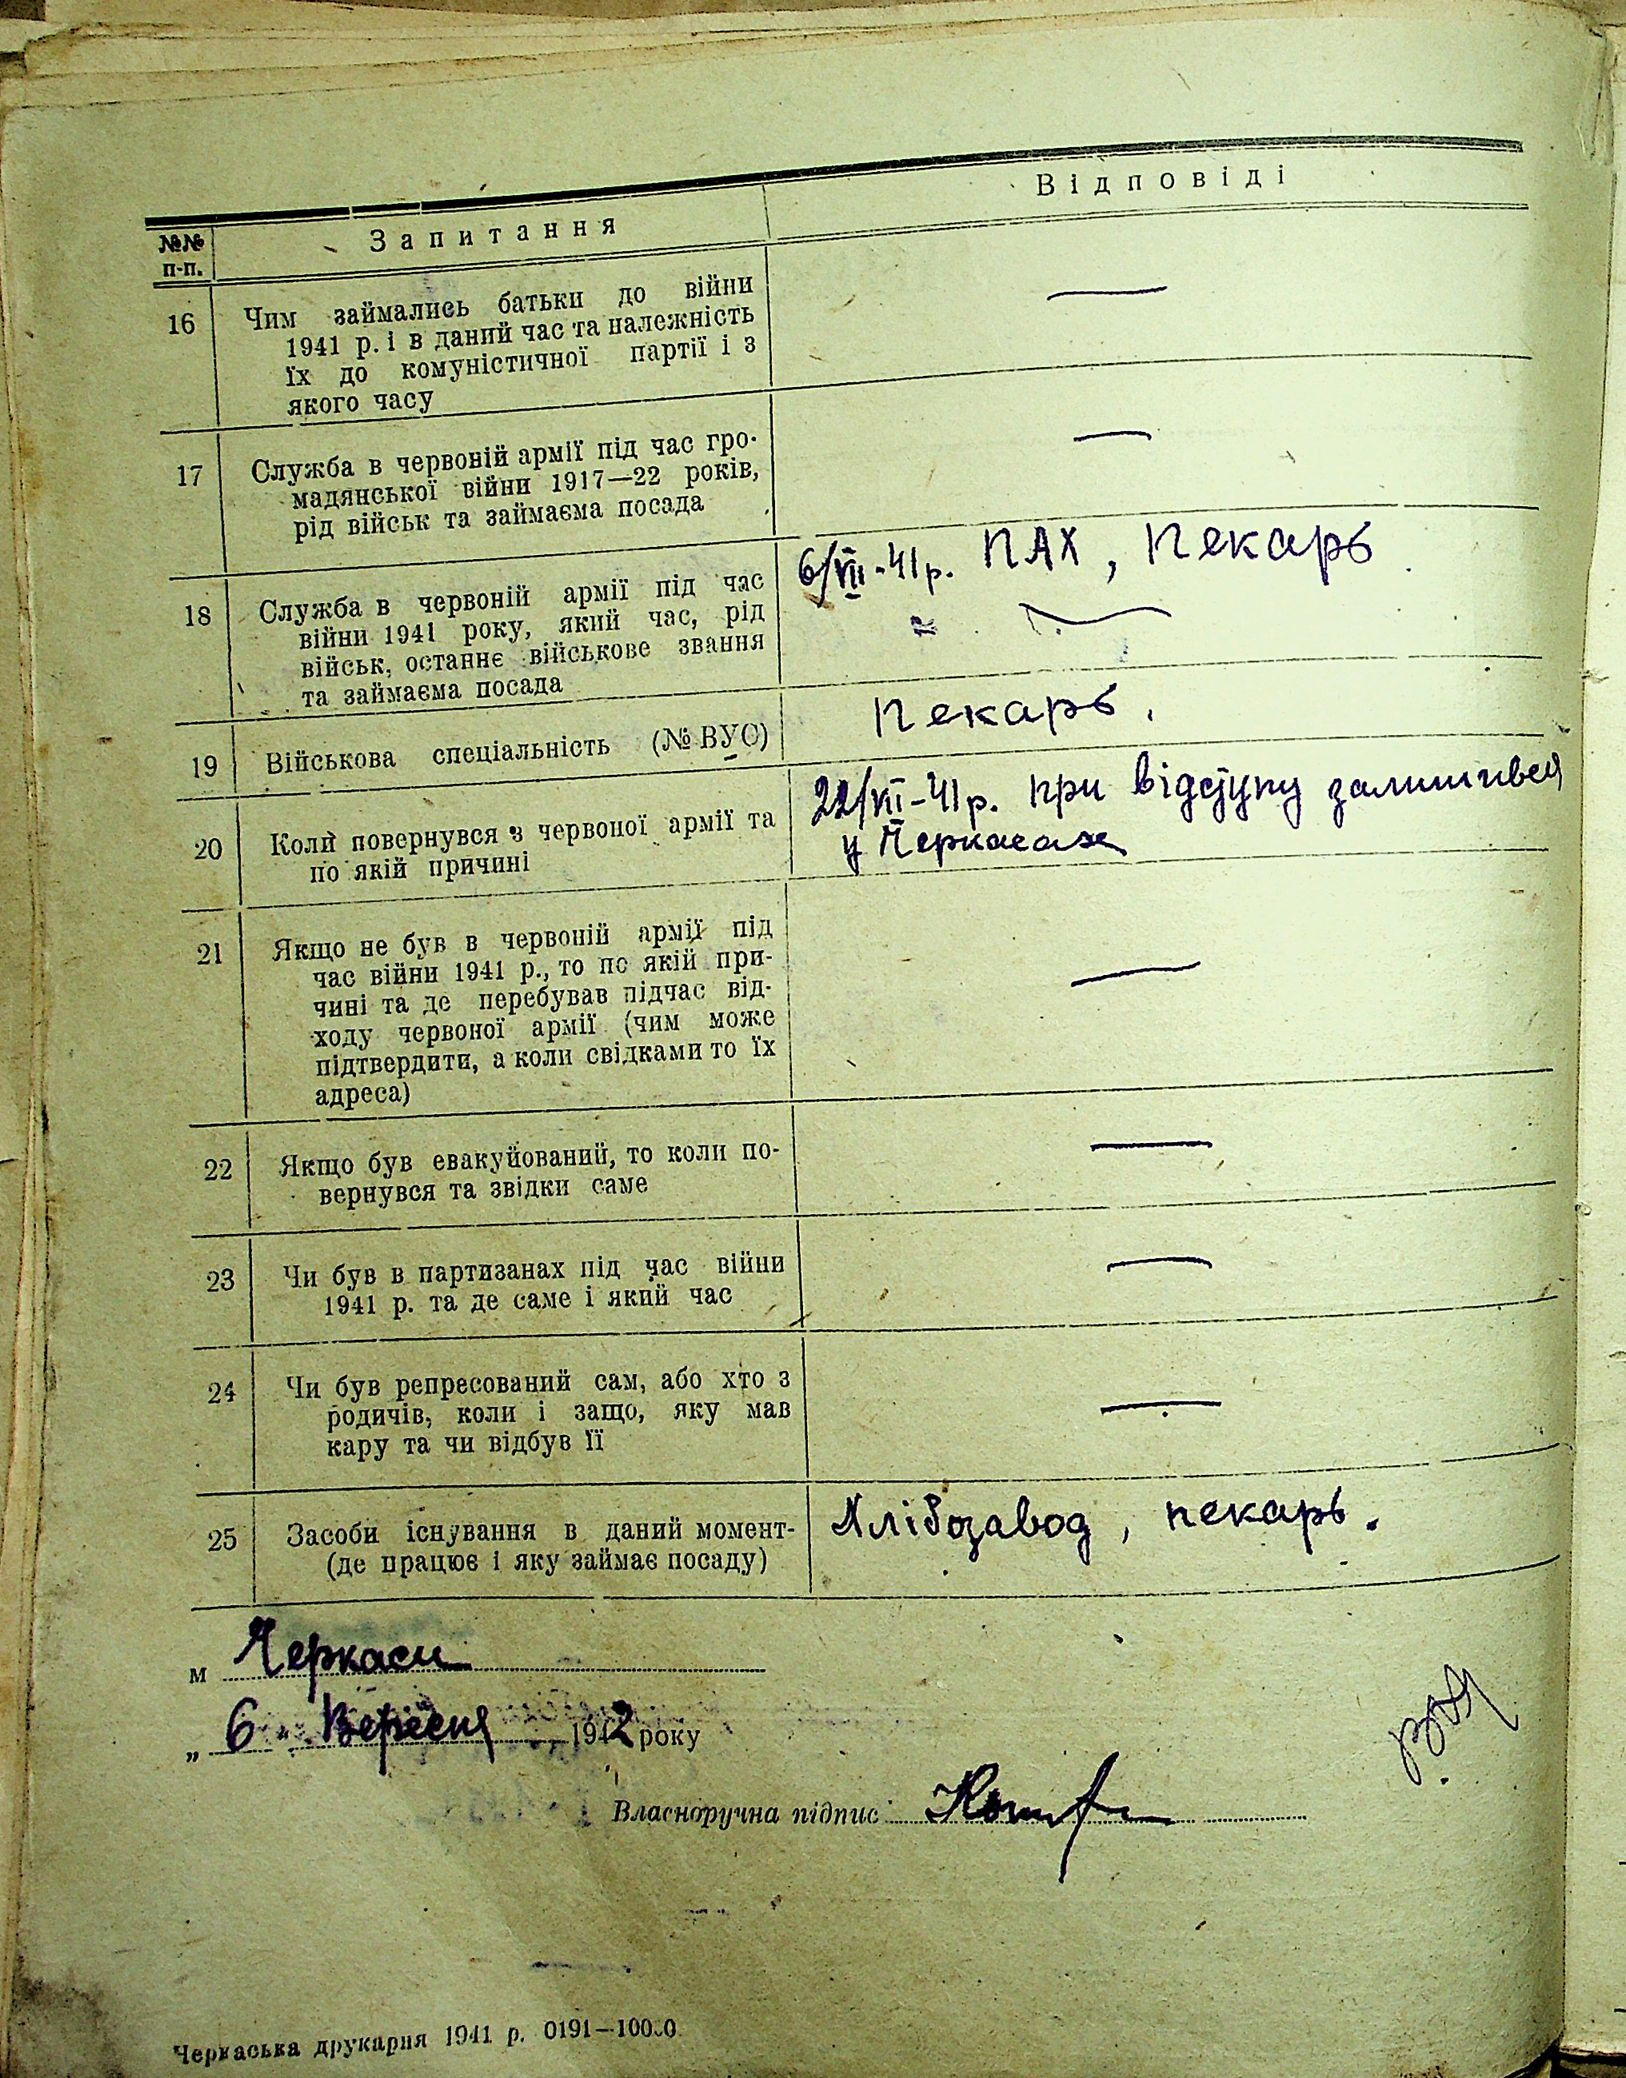 №№ п-п.
Запитання
Відповіді
16
Чим займались батьки до війни
1941 р. і в даний час та належність
їх до комуністичної партії і з
якого часу
—
17
Служба в червоній армії під час гро-
мадянської війни 1917—22 років,
рід військ та займаєма посада
—
18
Служба в червоній армії під час
війни 1941 року, який час, рід
військ, останнє військове звання
та займаєма посада
6/VII-41р. ПАХ, Пекарь
19
Військова спеціальність (№ ВУС)
Пекарь.
20
Коли повернувся з червоної армії та
по якій причині
22/VII-41р. при відступу залишився
у Черкасах
21
Якщо не був в червоній армії під
час війни 1941 р., то по якій при-
чині та де перебував підчас від-
ходу червоної армії (чим може
підтвердити, а коли свідками то їх
адреса)
—
22
Якщо був евакуйований, то коли по-
вернувся та звідки саме
—
23
Чи був в партизанах під час війни
1941 р. та де саме і який час
—
24
Чи був репресований сам, або хто з
родичів, коли і защо, яку мав
кару та чи відбув її
—
25
Засоби існування в даний момент-
(де працює і яку займає посаду)
Хлібозавод, пекарь.
м Черкаси
„ 6 " Вересня 1942 року
Власноручна підпис
Черкаська друкарня 1941 р. 0191—10000